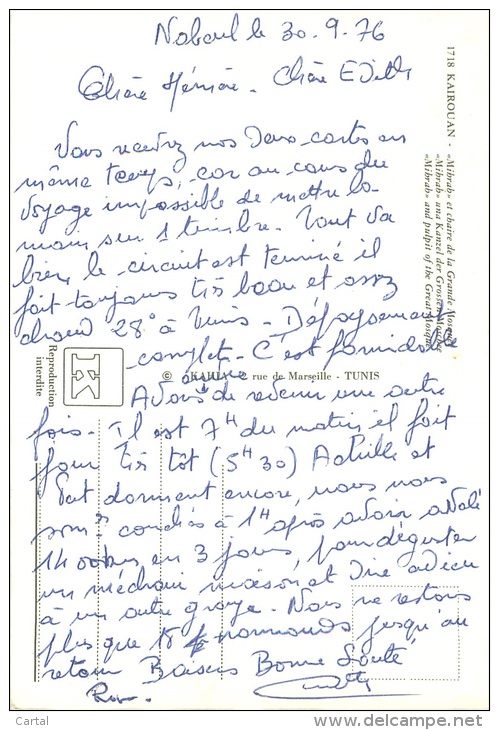 Nabeul le 30.9.76
Chère Mémère. Chère Edith
Vous recevrez nos deux cartes en
même temps, car au cours du
voyage impossible de mettre la
main sur 1 timbre. Tout va
bien, le circuit est terminé il
fait toujours très beau et assez
chaud 28° à Tunis. Dépaysement
complet. C'est formidable
A de revenir une autre
fois. Il est 7H du matin, il fait
jour très tôt (5H30) Achille et
Pat dorment encore, nous nous
sommes couchés à 1H après avoir avalé
1400 kms en 3 jours, pour déguster
un méchoui maison et dîner adieu
à un autre groupe. Nous ne restons
plus que 18 normands jusqu'au
retour Baisers Bonne Santé
1718 KAIROUAN - «Mihrab» et chaire de la Grande Mosquée
«Mihrab» und Kanzel der Grossen Moschee
«Mihrab» and pulpit of the Great Mosque
Reproduction
interdite
© KAHIA - 2 rue de Marseille - TUNIS
Cartal
www.delcampe.net